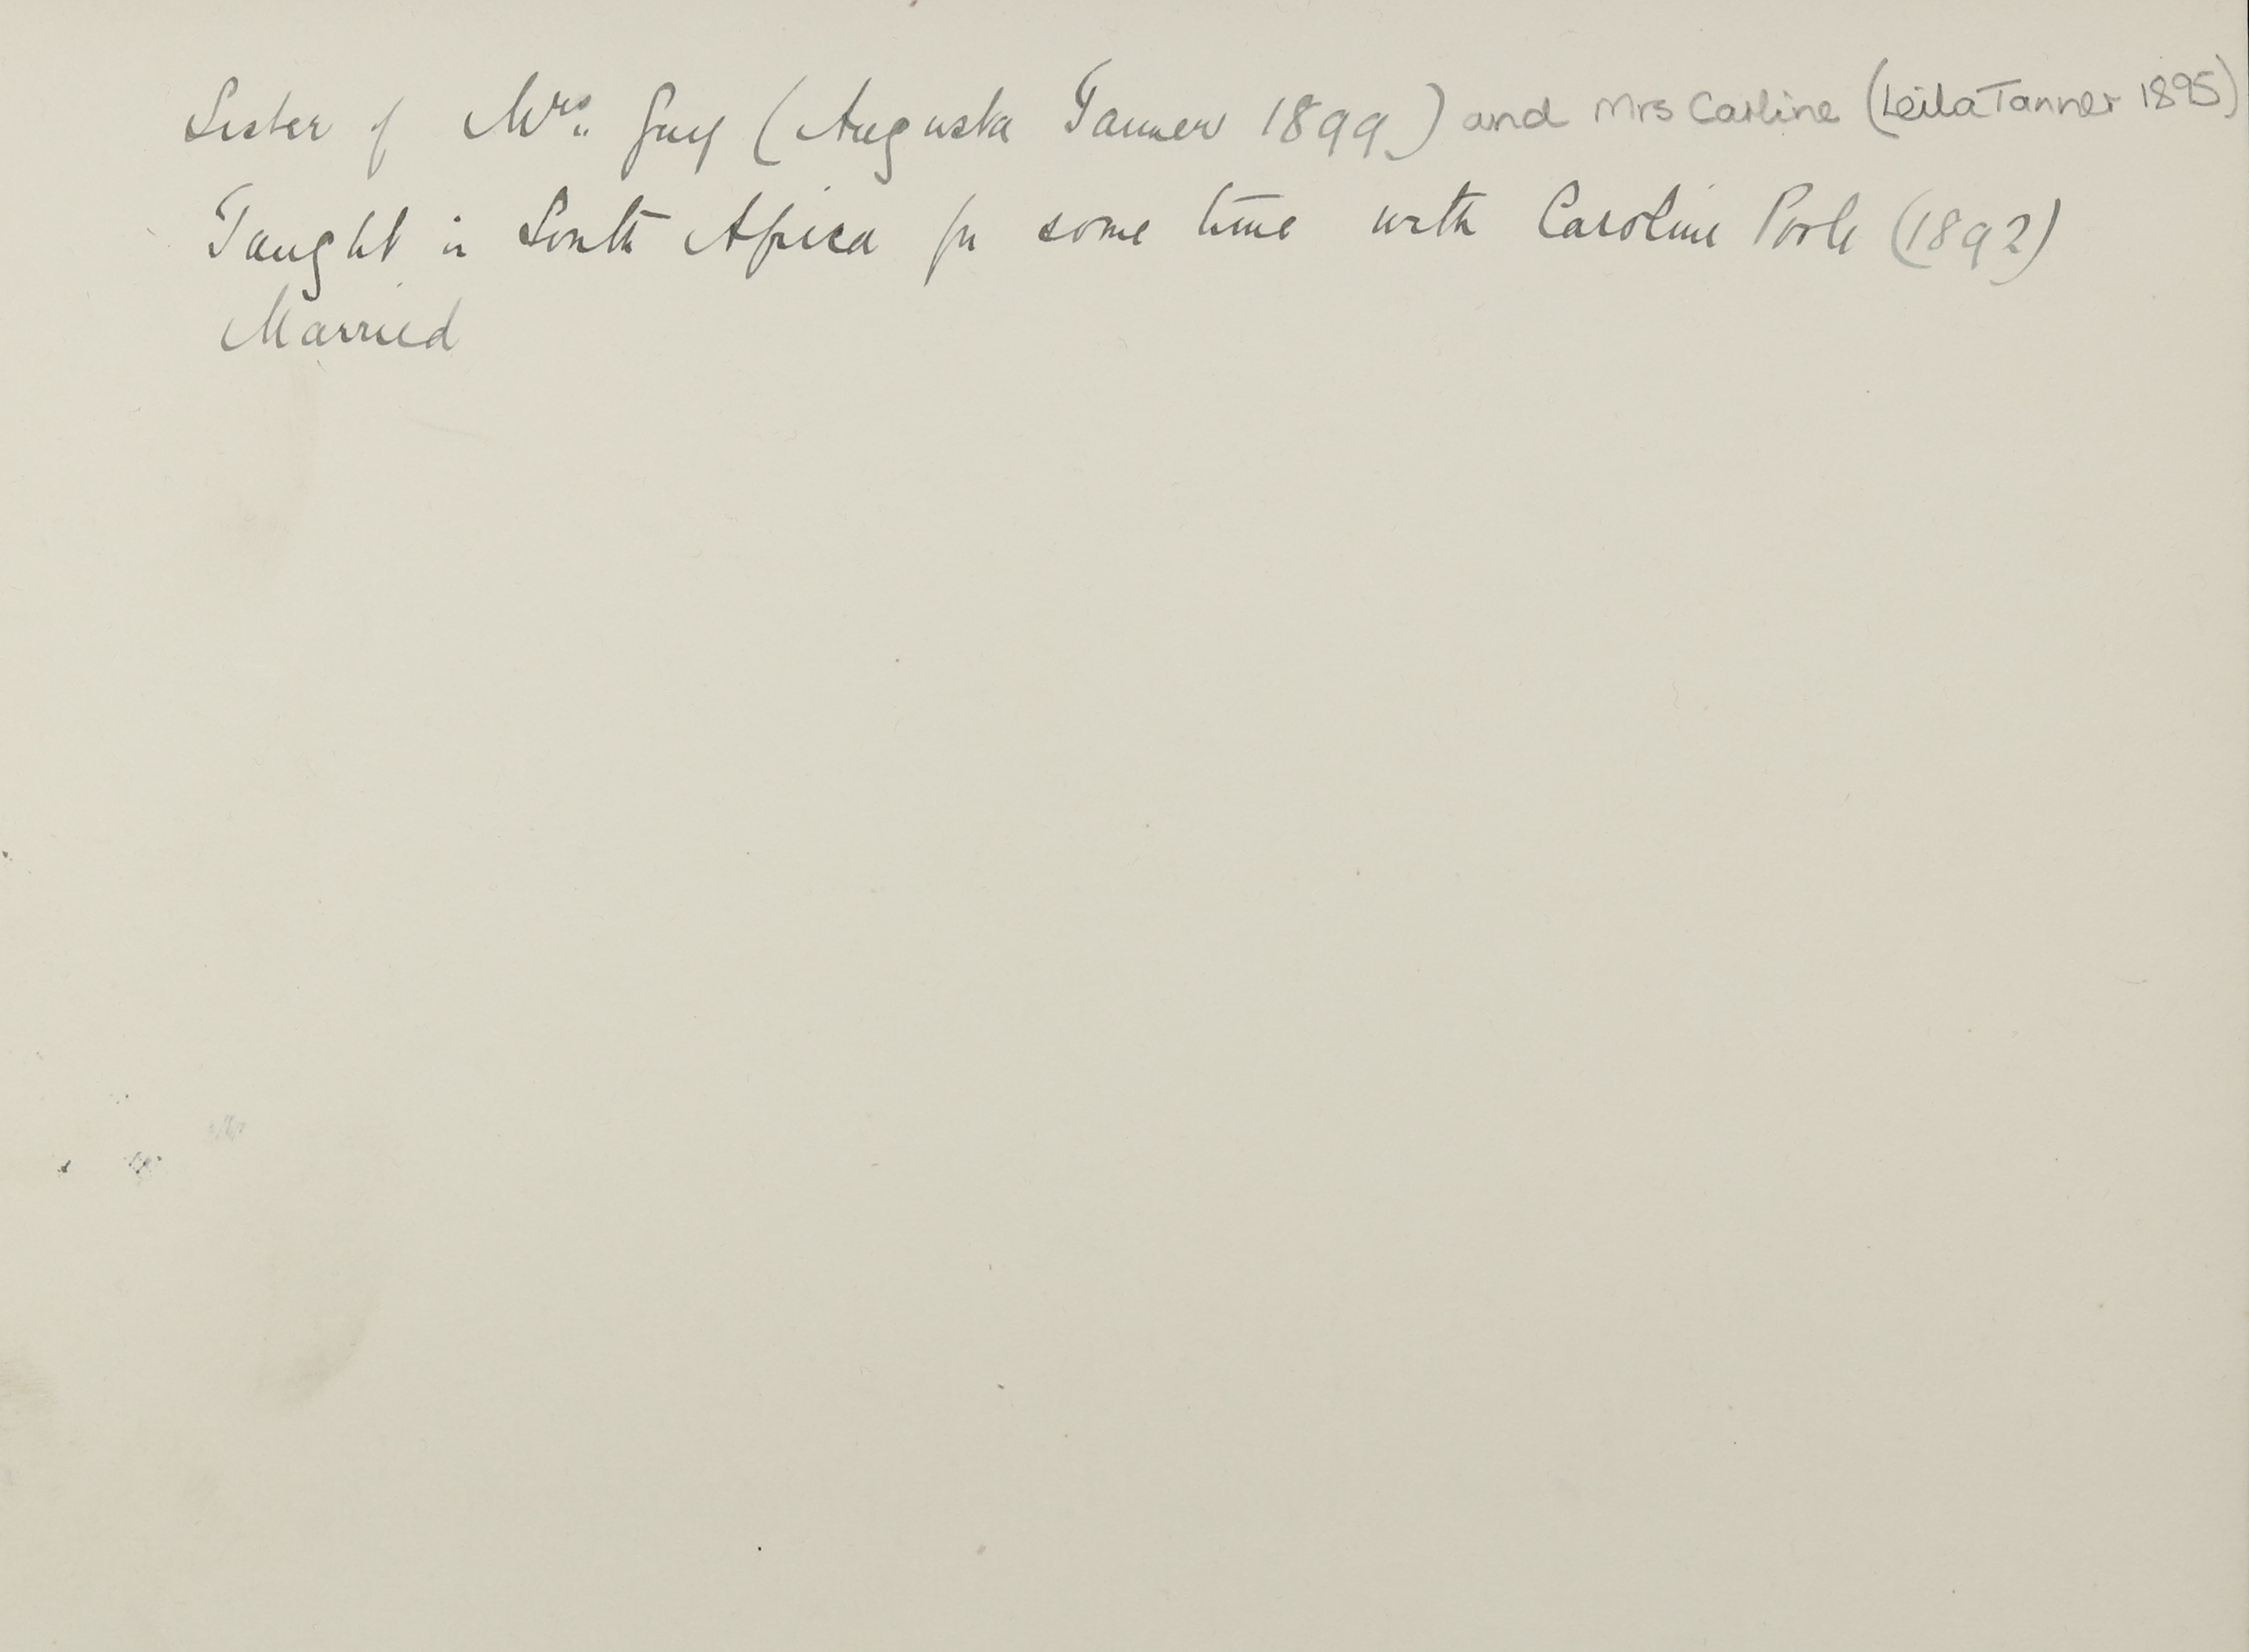 Sister of Mrs. Guy (Augusta Tanner 1899) and Mrs Carline (Leila Tanner 1895)
Taught in South Africa for some time with Caroline Poole (1892)
Married